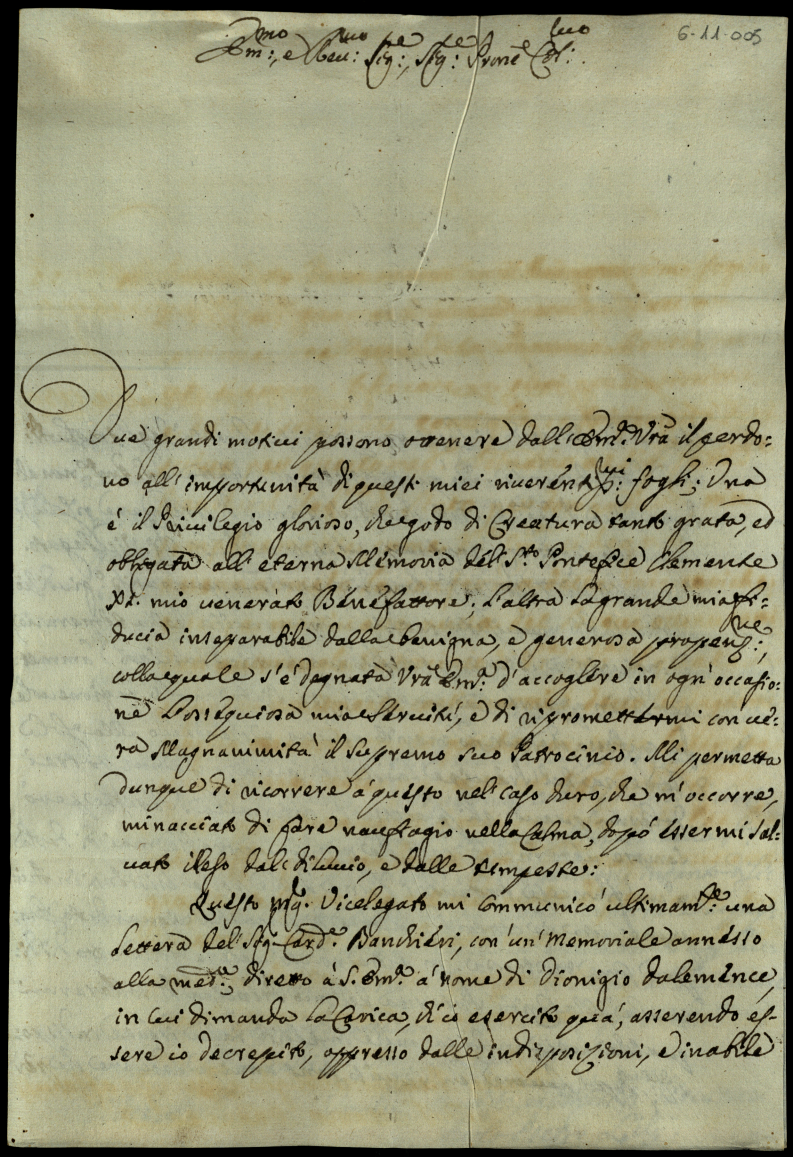 6-11-005
Em:mo, e Rev:mo Sig:re, Sig:re Prone Col:mo
Due grandi motivi possono ottenere dall'Em:a Vrã il perdo=
no all'importunità di questi miei riverentiss:mi fogli; Una
é il Privilegio glorioso, che godo di Creatura tanto grata, ed
obbligata all'eterna Memoria del S:to Pontefice Clemente
XI. mio venerato Benefattore; L'altra la grande mia fi=
ducia inseparabile dalla benigna, e generosa propens:ne,
colla quale s'é degnata Vrã Em:a d'accogliere in ogn'occasio=
ne l'ossequiosa mia Servitú, e di ripromettermi con ve=
ra Magnanimità il supremo suo Patrocinio. Mi permetta
dunque di ricorrere á questo nel caso duro, che m'occorre,
minacciato di fare naufragio nella Calma, dopó essermi sal=
vato illeso dal diluvio, e dalle tempeste:
Questo Mg:r Vicelegato mi communicó ultimam:te una
Lettera del Sig:r Card:e Banchieri, con un' Memoriale annesso
alla med:a, diretto á S. Em:a á nome di Dionigio Dalemence,
in cui dimanda la Carica, ch'io esercito quá, asserendo es=
sere io decrepito, oppresso dalle indisposizioni, e inabile